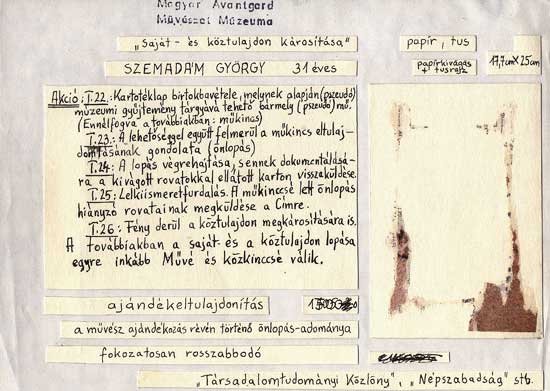 Magyar Avantgard
Művészet Múzeuma
„Saját- és köztulajdon károsítása”
papír, tus
SZEMADÁM GYÖRGY 31 éves
papírkivágás
+ tusrajz
17,7cm X 25cm
Akció: I.22.: Kartotéklap birtokbavétele, melynek alapján (pszeudo)
múzeumi gyűjtemény tárgyává tehető bármely (pszeudo) mű
(Ennélfogva a továbbiakban: műkincs)
I.23.: A lehetőséggel együtt felmerül a műkincs eltulaj-
donításának gondolata (önlopás)
I.24.: A lopás végrehajtása, s ennek dokumentálásá-
ra a kivágott rovatokkal ellátott karton visszaküldése.
I.25.: Lelkiismeretfurdalás. A műkincssé lett önlopás
hiányzó rovatainak megküldése a Címre.
I.26.: Fény derül a köztulajdon megkárosítására is.
A továbbiakban a saját- és a köztulajdon lopása
egyre inkább Művé és közkinccsé válik.
ajándékeltulajdonítás
a művész ajándékozás révén történő önlopás-adománya
fokozatosan rosszabbodó
„Társadalomtudományi Közlöny”, „Népszabadság” stb.